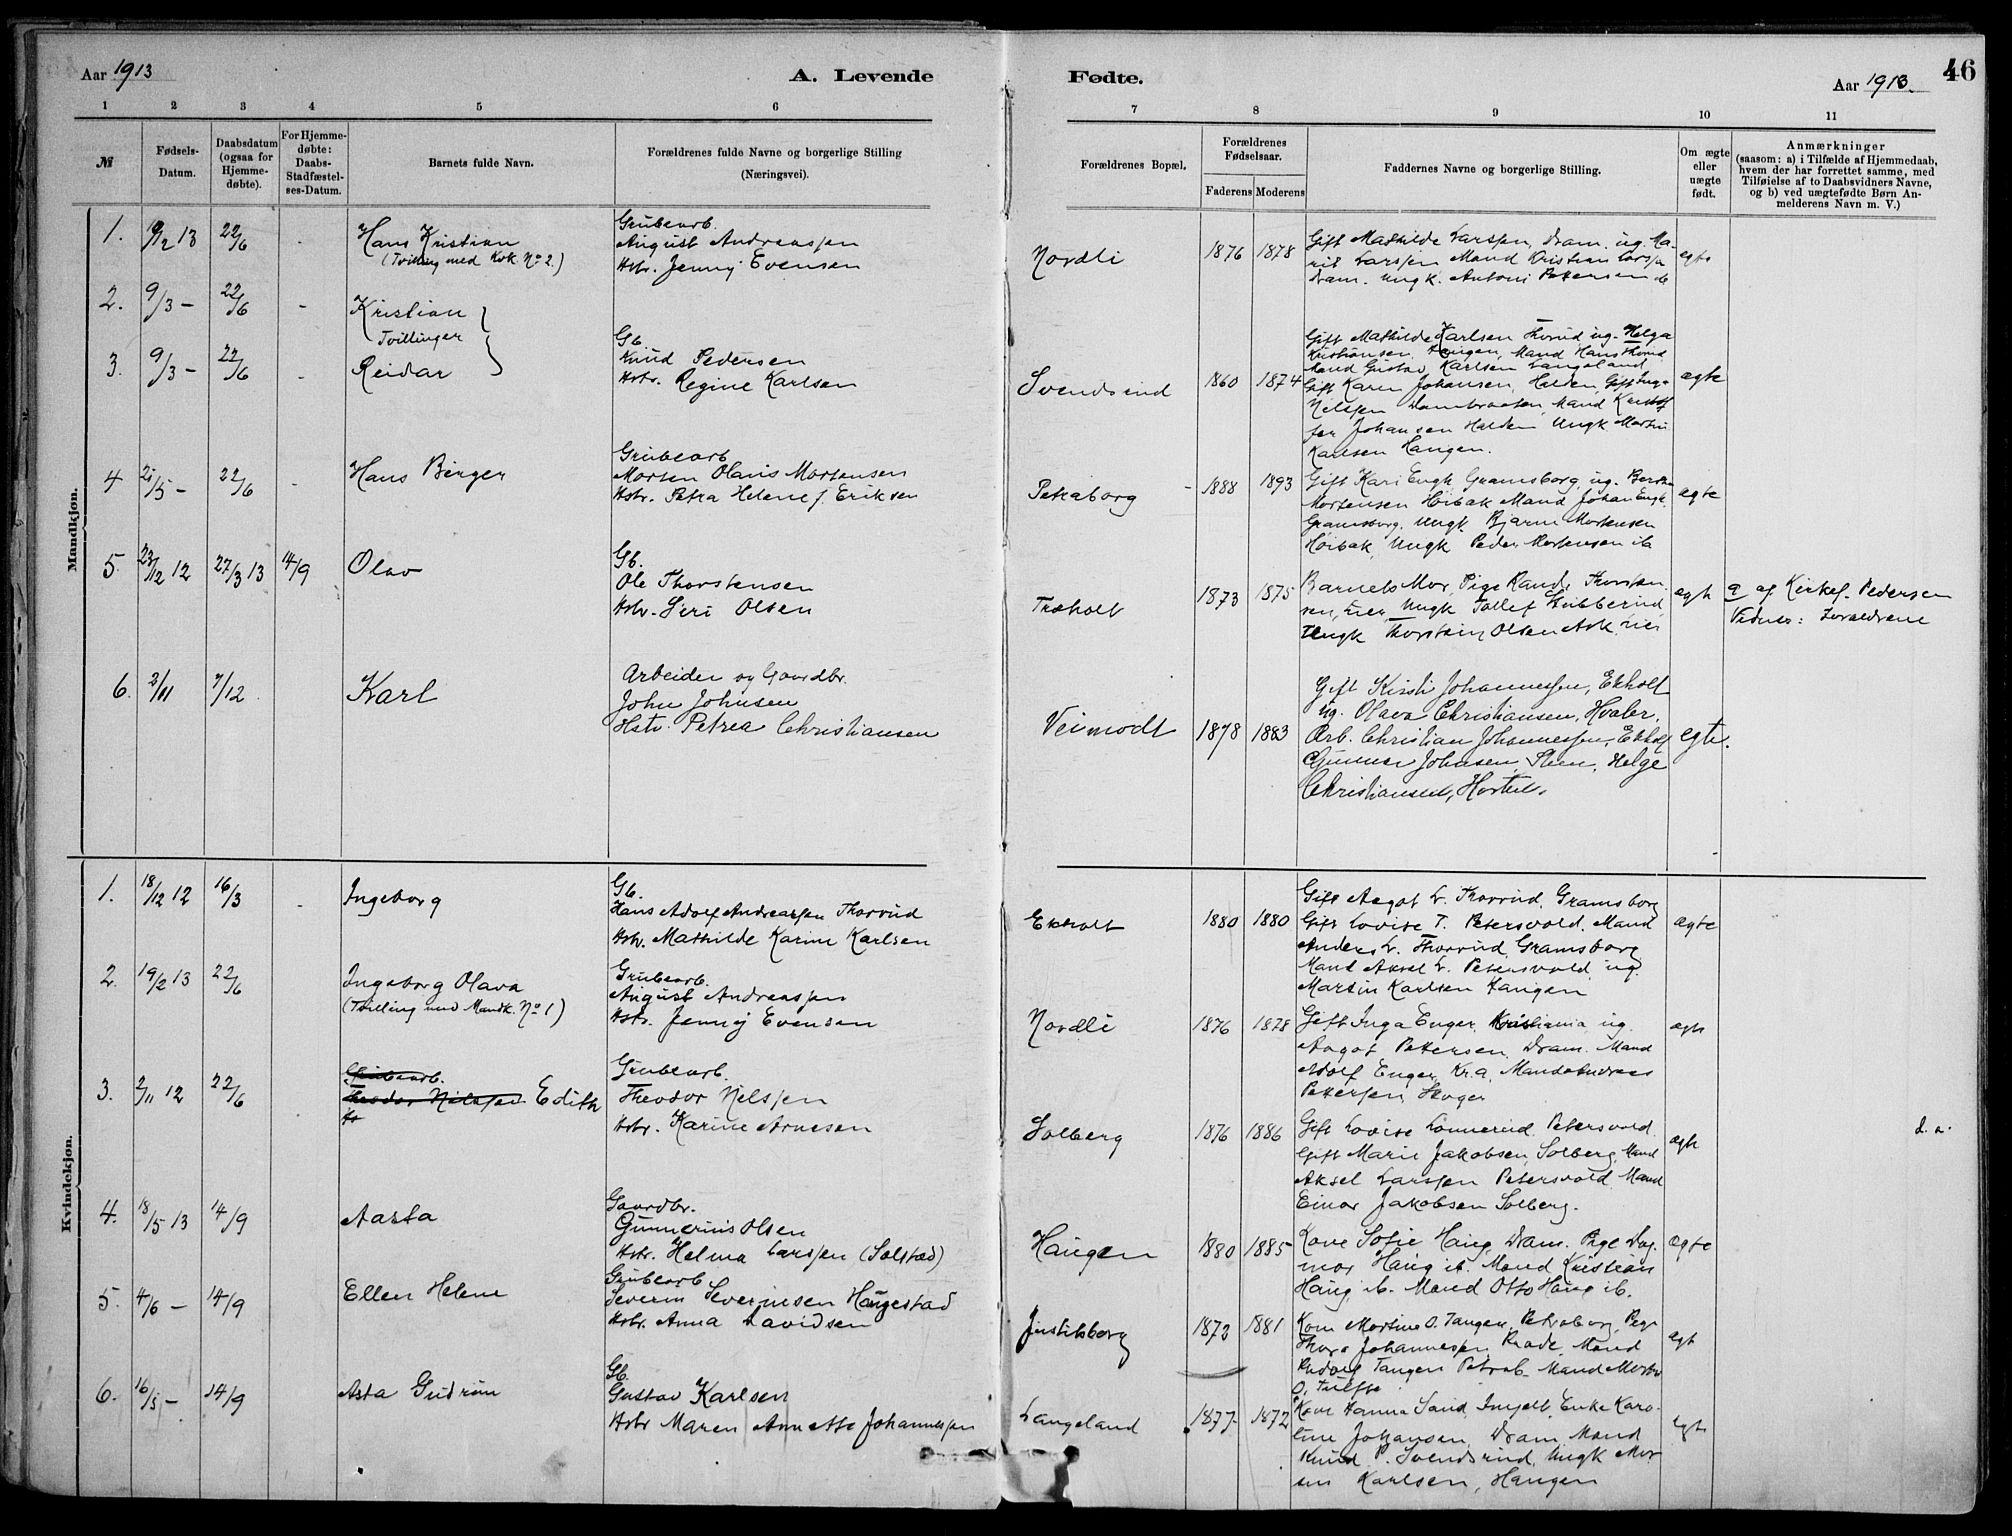 Aar 1913
A. Levende
1 2 3 4 5 6
№
Fødsels-
Datum.
Daabsdatum
(ogsaa for
Hjemme-
døbte).
For Hjemme-
døbte:
Daabs-
Stadfæstel-
ses-Datum.
Barnets fulde Navn.
Forældrenes fulde Navne og borgerlige Stilling
(Næringsvei).
Mandkjøn.
1. 19/2 13 22/6 -
Hans Kristian
(Tvilling med Kvk. No 2.)
Grubearb.
August Andreassen
Hstr. Jenny Evensen
2. 9/3 - 22/6 -
Kristian
Tvillinger
3. 9/3 - 22/6 -
Reidar
Gb.
Knud Pedersen
Hstr. Regine Karlsen
4 21/5 - 22/6 -
Hans Birger
Grubearb
Morten Olaus Mortensen
Hstr. Petra Helene f. Eriksen
5. 23/12 12 27/3 13 14/9
Olav
Gb.
Ole Thorstensen
Hstr. Siri Olsen
6. 2/11 7/12.
Karl
Arbeider og Gaardbr.
John Johnsen
Hstr. Petrea Christiansen
Kvindekjøn.
1. 18/12 12 16/3 -
Ingeborg
Gb.
Hans Adolf Andreassen Thorrud
Hstr. Mathilde Karine Karlsen
2. 19/2 13 22/6
Ingeborg Olava
(Tvilling med Mandk. No 1)
Grubearb.
August Andreassen
Hstr. Jenny Evensen
3. 2/11 12 22/6
Grubearb.
Theodor Nilssen Edith
Hs
Grubearb.
Theodor Nilssen
Hstr. Karine Arnesen
4. 18/5 13 14/9
Aasta
Gaardbr.
Gunnerius Olsen
Hstr. Helma Larssen (Solstad)
5. 4/6 - 14/9
Ellen Helene
Grubearb
Severin Severinsen Haugestad
Hstr. Anna Davidsen
6. 16/5 - 14/9
Asta Gudrun
Gb.
Gustav Karlsen
Hstr Maren Annette Johannessen
Fødte.
Aar 1913.
46
7 8 9 10 11
Forældrenes Bopæl.
Forældrenes
Fødselsaar.
Faderens Moderens
Faddernes Navne og borgerlige Stilling.
Om ægte
eller
uægte
født.
Anmærkninger
(saasom: a) i Tilfælde af Hjemmedaab,
hvem der har forrettet samme, med
Tilføielse af to Daabsvidners Navne,
og b) ved uægtefødte Børn An-
melderens Navn m. V.)
Nordli 1876 1878
Gift Mathilde Larssen, Dram. ug. Ma-
rit Larssen Mand Kristian Larssen
Dram. Ungk. Antoni Pettersen do
egte
Svendsrud 1860 1874
Gift Mathilde Karlsen Thorrud ug. Helga
Kristiansen, Haugen, Mand Hans Thorrud
Mand Gustav Karlsen Langeland
Gift Karen Johansen, Halden, Gift Inga
Nilssen Dambraaten, Mand Kristof
fer Johansen Halden Ungk Martin
Karlsen Haugen.
ægte
Petraborg - 1888 1893
Gift Kari Engh Gramsborg, ug. Bertha
Mortensen Hoibak Mand Johan Engh
Gramsborg, Ungk. Bjarne Mortensen
Hoibak, Ungk Peder Mortensen ib
ægte
Træholt 1873 1875
Barnets Mor, Pige Randi Thorsten
sen, Lier, Ungk Tollef Stubberud,
Ungk Thorstein Olsen Ask, Lier
egte
a af Kirkes. Pedersen
Vidner: Forældrene
Veimodt 1878 1883
Gift Kirsti Johannessen, Ekholt
Ug. Olava Christiansen, Hvaler.
Arb. Christian Johannessen, Ekholt
Gunnar Johnsen, Steen, Helge
Christiansen, Horten.
egte.
Ekholt 1880 1880
Gift Aagot L. Thorrud, Gramsborg
Gift Lovise T. Petersvold, Mand
Anders L. Thorrud, Gramsborg
Mand Aksel L. Petersvold, ug.
Martin Karlsen Haugen
ægte
Nordli 1876 1878
Gift Inga Enger, Kristiania, ug.
Aagot Pettersen, Dram. Mand
Adolf Enger, Kr.a, Mand Andreas
Pettersen, Skoger
egte
Solberg 1876 1886
Gift Lovise Lonnerud, Petersvold
Gift Marie Jakobsen, Solberg, Mand
Aksel Larssen Petersvold Mand
Einar Jakobsen Solberg.
ægte
d. a.
Haugen 1880 1885
Kone Sofie Haug, Dram. Pige Dag
mar Haug ib. Mand Kristian
Haug, ib. Mand Otto Haug ib.
ægte
Justitsborg 1872 1881
Kone Martine O. Tangen, Petraborg, Pige
Thora Johannessen, Raade, Mand
Rudolf Tangen Petrab. Mand
egt
Langeland 1877 1872
Kone Hanna Sand, Enke Karo-
line Johansen, Dram Mand
Knud P. Svendsrud, Ungk Mar
Karlsen, Haugen
egte